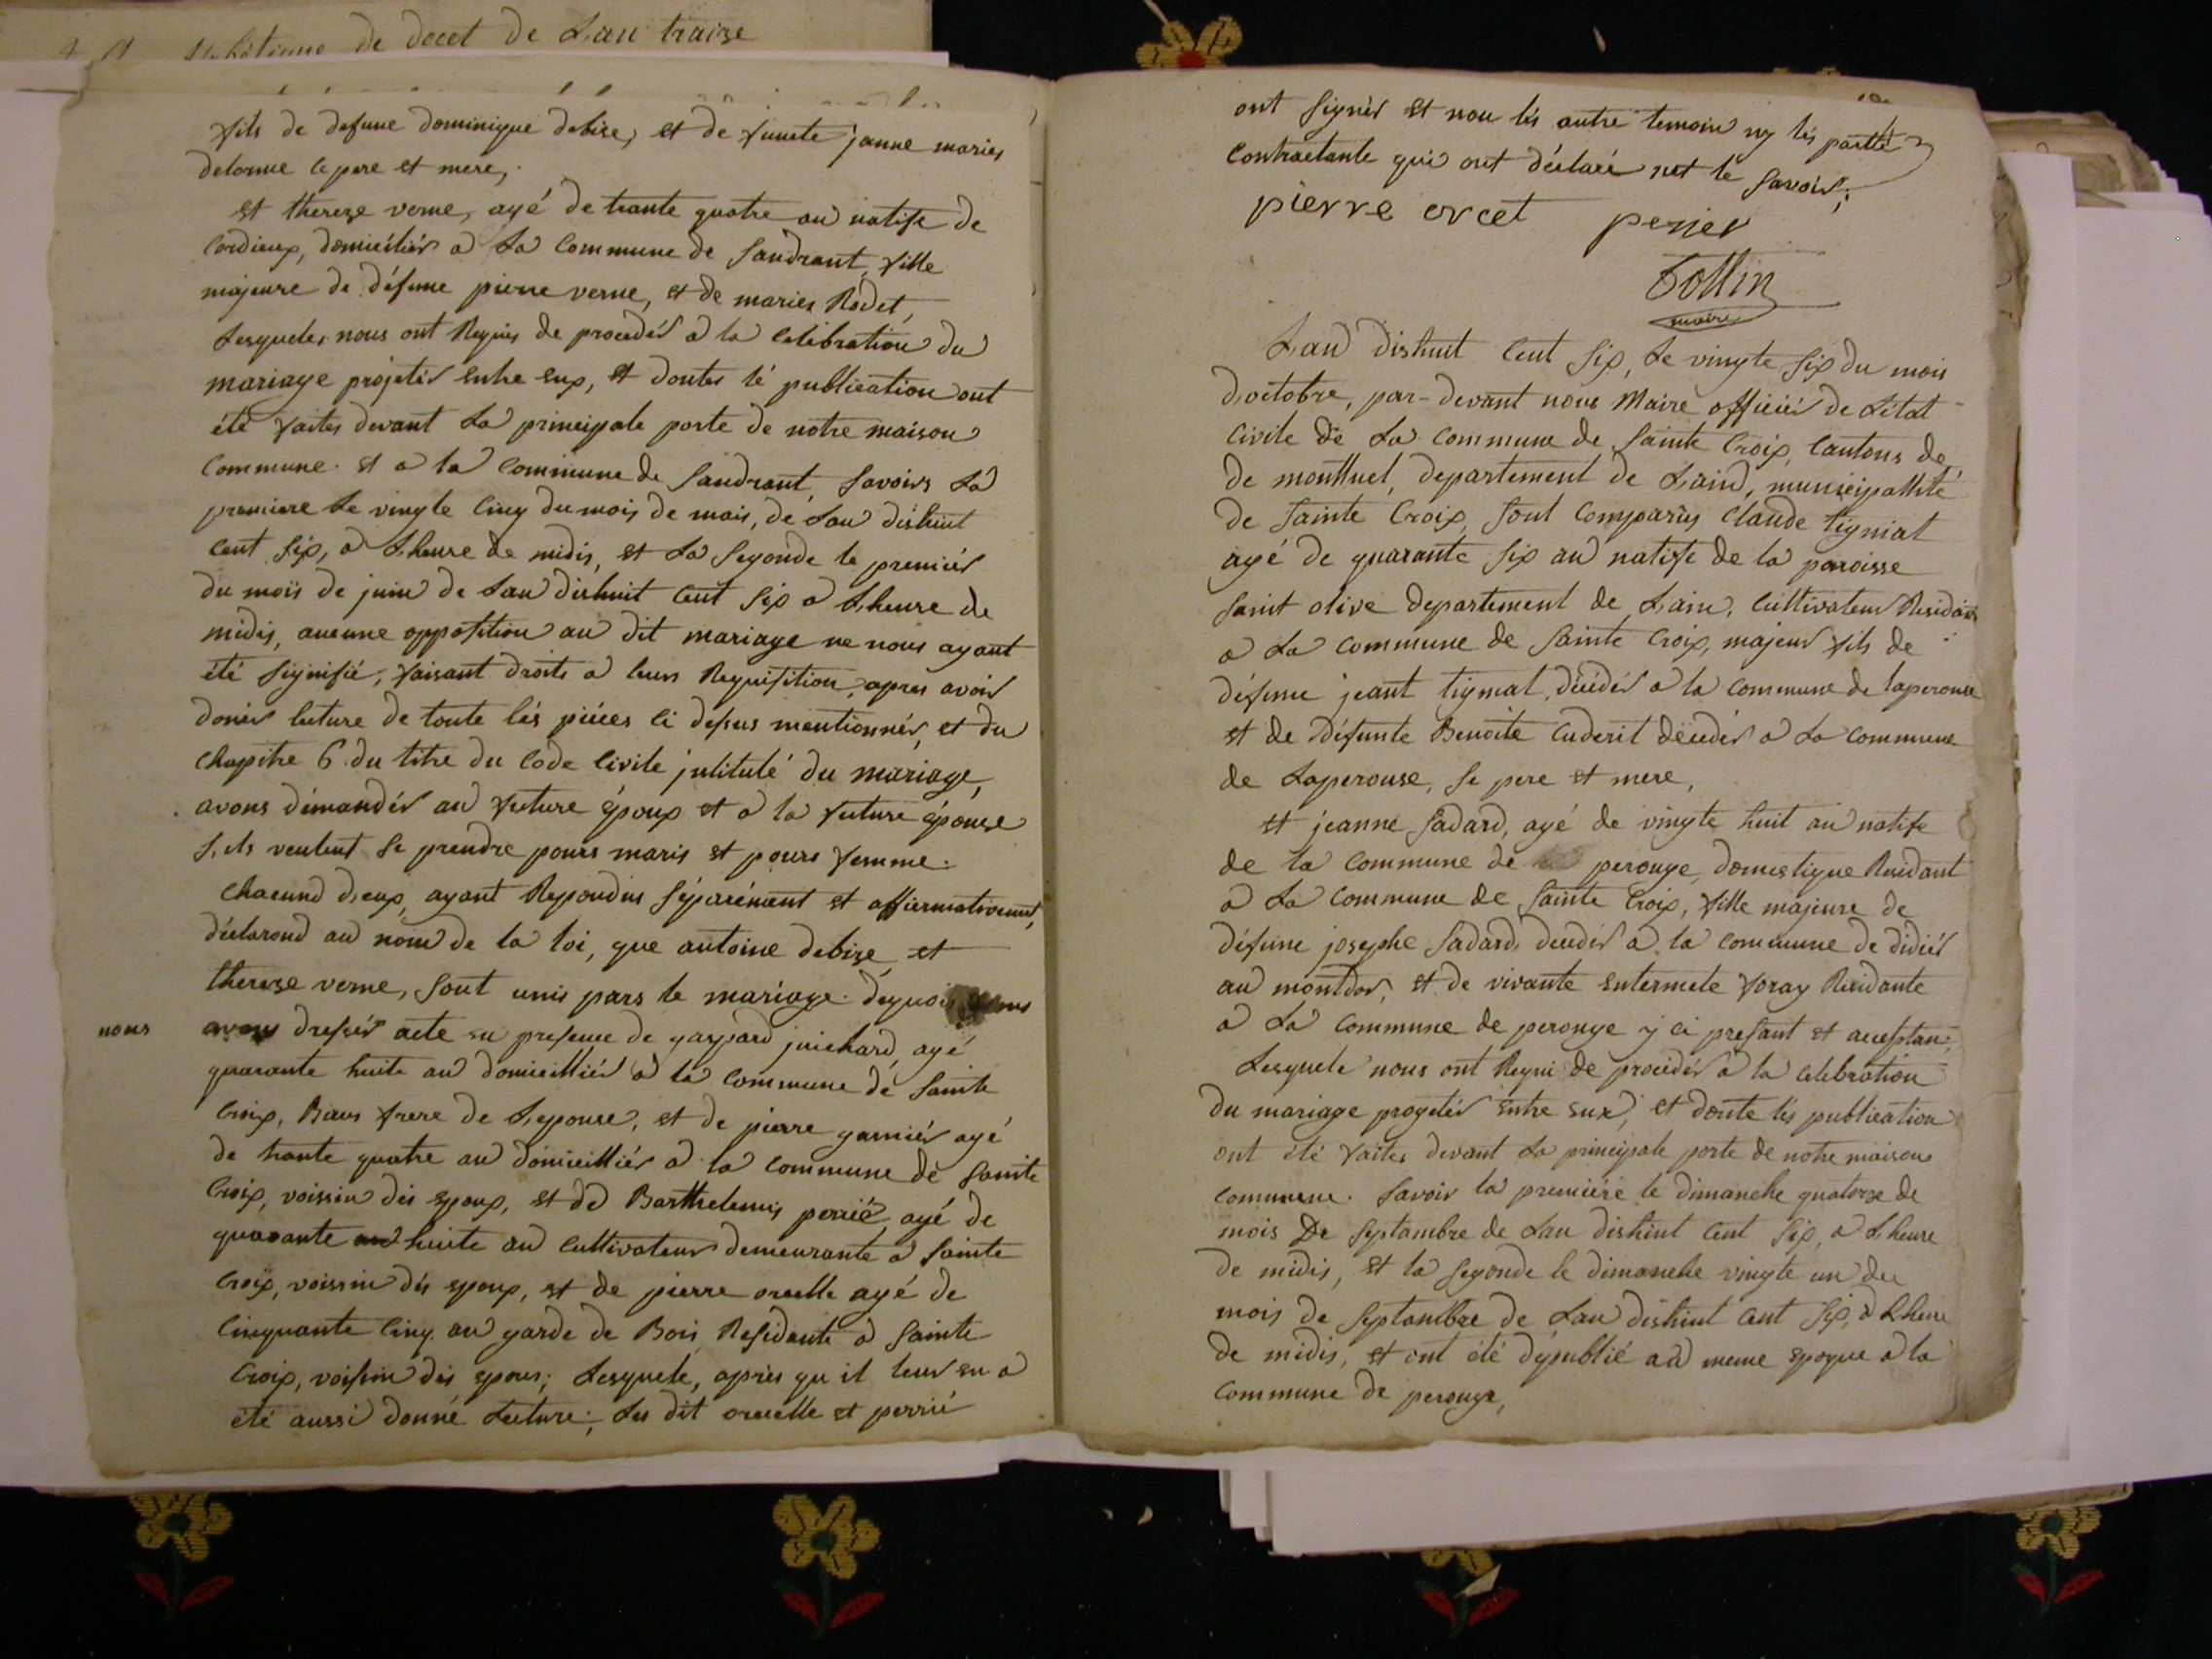 de decet de Lan traize
fils de defune dominique debize, et de funete janne maries
delorme le pere et mere,
et thereze verne, agé de trante quatre an natife de
Cordieux, domicilier a La Commune de Sandrant, fille
majeure de défune pierre verne, et de maries Rodet,
Lesqueles nous ont Requis de proceder a la Celebration du
mariage projeter entre eux, et dontes lé publication ont
été faites devant La principale porte de notre maison
Commune. et a la Commune de Sandrant, Savoirs La
premiere Le vingte Cinq du mois de mais, de Lan dishuit
Cent Six, a Lheure de midis, et La Segonde le premier
du mois de juin de Lan dishuit Cent Six a Lheure de
midis, aucune opposition au dit mariage ne nous ayant
été Signifié, faisant droits a leurs Requisition, apres avoir
donér lecture de toute lés piéces Ci desus mentionnér, et du
Chapitre 6 du titre du Code Civile jntitulé du mariage,
avons démandér au future époux et a la future épouze
S,ils veulent Se prendre pours maris et pours femme.
Chacund d,eux, ayant Repondus Séparément et affiermativement,
déclarond au nom de la loi, que antoine debize et
thereze verne, Sont unis pars le mariage. dequois
nous avons dresér acte en presence de gaspard juichard, agé
quarante huite an domicillier a la Commune de Sainte
Croix, Baus frere de Lepouse, et de pierre garnier agé
de trante quatre an domicillier a la Commune de Sainte
Croix, voissin dés epoux, et de Barthelemis perrié, agé de
quarante huite an Cultivateur demeurante a Sainte
Croix, voissin dés epoux, et de pierre orcelle agé de
Cinquante Cinq an garde de Bois Residante a Sainte
Croix, voissin dés epoux; Lesquele, aprés qu il leur en a
été aussi donné Lecture; Les dit orcelle et perrié
ont Signér et nou lés autre temoin ny lés partié
Contractante qui ont déclaré net le Savoir;
pierre orcet perier
Tollin
maire
Lan dishuit Cent Six, Le vingte Six du mois
d,octobre, par-devant nous Maire officier de Létat
Civile de La Commune de Sainte Croix, Cantons de
de montluel, departement de Laind, municipallité
de Sainte Croix, Sont Comparus Claude tigniat
agé de quarante Six an natife de la paroisse
Saint olive departement de Lain, Cultivateur Residans
a La Commune de Sainte Croix, majeur fils de
défune jeant tigniat, décédér a la Commune de laperouse
et de défunte Benoite Cuderit décédér a La Commune
de Laperouse, Se pere et mere,
et jeanne Sadard, agé de vingte huit an natife
de la Commune de perouge, domestique Residant
a La Commune de Sainte Croix, fille majeure de
défune josephe Sadard, decedér a la Commune de didiér
au montdor, et de vivante entermete foray Residante
a La Commune de perouge y ci presant et acceptan;
Lesquele nous ont Requi de procédér a la Celebration
du mariage progetér entre eux, et donte lés publication
ont été faites devant La principale porte de notre maison
Commune. Savoir la premiére le dimanche quatorze de
mois De Septambre de Lan dishuit Cent Six, a Lheure
de midis, et la Segonde le dimanche vingte un du
mois de Septambre de Lan dishuit Cent Six, a Lheure
de midis, et ont été depublié au meme epoque a la
Commune de perouge,